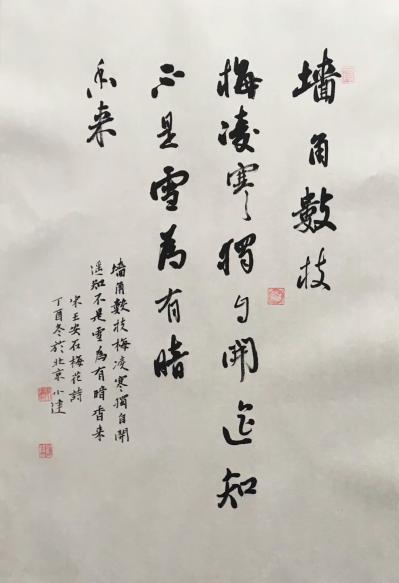 墙角數枝
梅凌寒獨自開遥知
不是雪為有暗
香来
墙角數枝梅凌寒獨自開
遥知不是雪為有暗香来
宋王安石梅花詩
丁酉冬於北京小